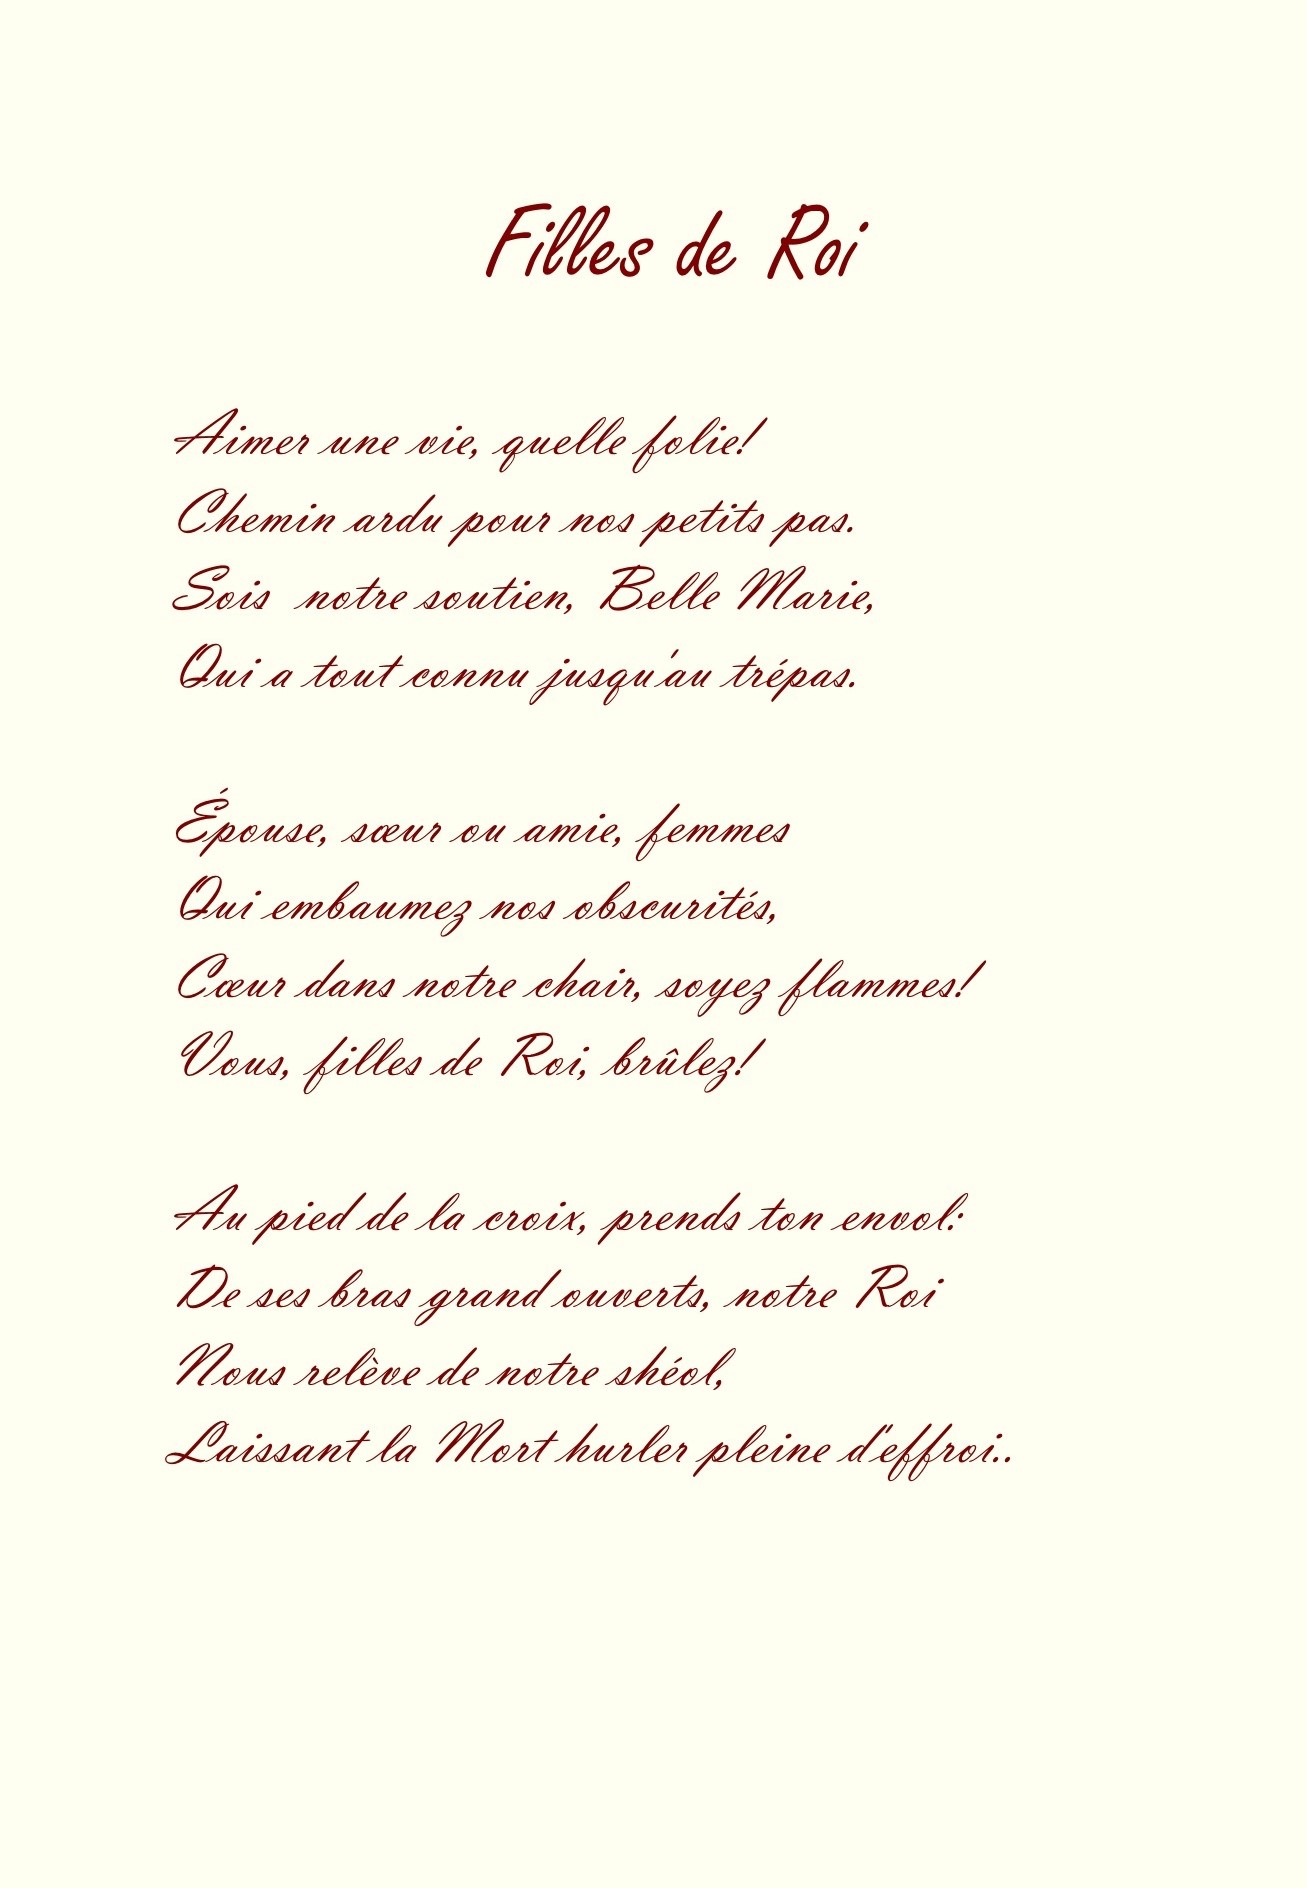 Filles de Roi
Aimer une vie, quelle folie!
Chemin ardu pour nos petits pas.
Sois notre soutien, Belle Marie,
Qui a tout connu jusqu'au trépas.
Épouse, sœur ou amie, femmes
Qui embaumez nos obscurités,
Cœur dans notre chair, soyez flammes!
Vous, filles de Roi, brûlez!
Au pied de la croix, prends ton envol:
De ses bras grand ouverts, notre Roi
Nous relève de notre shéol,
Laissant la Mort hurler pleine d'effroi..